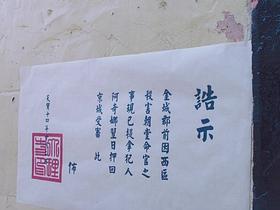 誥示
金城郡前因西區
投害朝堂命官之
事現已捉拿犯人
阿奇娜翌日押回
京城受審 此
佈
天寶十